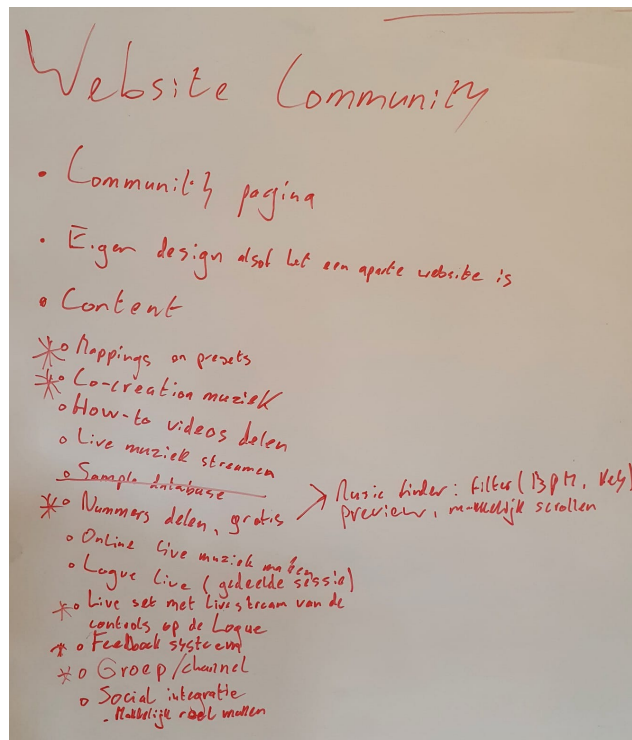 Website Community
• Community pagina
• Eigen design alsof het een aparte website is
• Content
* o Mappings en presets
* o Co-creation muziek
o How-to videos delen
o Live muziek streamen
o Sample database
* o Nummers delen, gratis
Music finder: filter (BPM, Key)
preview, makkelijk scrollen
o Online live muziek maken
o Logue live (gedeelde sessie)
* o Live set met livestream van de
controls op de Logue
* o Feedback systeem
* o Groep/channel
o Social integratie
• Makkelijk reel maken